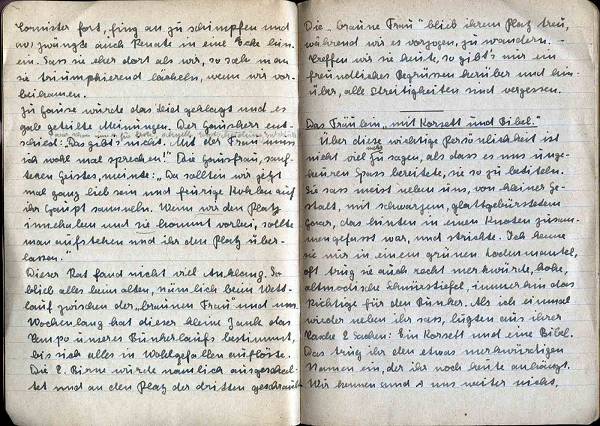 Tornister fort, fing an zu schimpfen und
zwängte auch Renate in eine Ecke hin-
ein. Sass sie eher dort als wir, so sah man
sie triumphierend lächeln, wenn wir vor-
beikamen.
Zu Hause würde das Leid geklagt und es
gab geteilte Meinungen. Der Hausherr ent-
schied: "Das gibt's nicht. Mit der Frau muss
ich wohl mal sprechen!" Die Hausfrau, sanf-
teren Geistes, meinte: "Da sollten wir jetzt
mal ganz lieb sein und feurige Kohlen auf
ihr Haupt sammeln. Wenn wir den Platz
innehaben und sie kommt vorbei, sollte
man aufstehen und ihr den Platz über-
lassen."
Dieser Rat fand nicht viel Anklang. So
blieb alles beim alten, nämlich beim Wett-
lauf zwischen der "braunen Frau" und uns.
Wochenlang hat dieser kleine Zank das
Tempo unseres Bunkerlaufs bestimmt,
bis sich alles in Wohlgefallen auflöste.
Die 2. Birne würde nämlich ausgeschal-
tet und an den Platz der dritten geschraubt.
Die "braune Frau" blieb ihrem Platz treu,
während wir es vorzogen, zu wandern. -
Treffen wir sie heute, so gibt's nur ein
freundliches Begrüssen herüber und hin-
über, alle Streitigkeiten sind vergessen.
Das Fräulein "mit Korsett und Bibel."
Über diese wichtige Persönlichkeit ist
nicht viel mehr zu sagen, als dass es uns unge-
heuren Spass bereitete, sie so zu betiteln.
Sie sass meist neben uns, von kleiner Ge-
stalt, mit schwarzem, glattgebürstetem
Haar, das hinten in einen Knoten zusam-
mengefasst war, und strickte. Ich kenne
sie nur in einem grünen Lodenmantel,
oft trug sie auch recht merkwürdige, hohe,
altmodische Schnürstiefel, immerhin das
Richtige für den Bunker. Als ich einmal
wieder neben ihr sass, lugten aus ihrer
Tasche 2 Sachen: Ein Korsett und eine Bibel.
Das trug ihr den etwas merkwürdigen
Namen ein, der ihr noch heute anhängt.
Wir kennen uns weiter nicht,